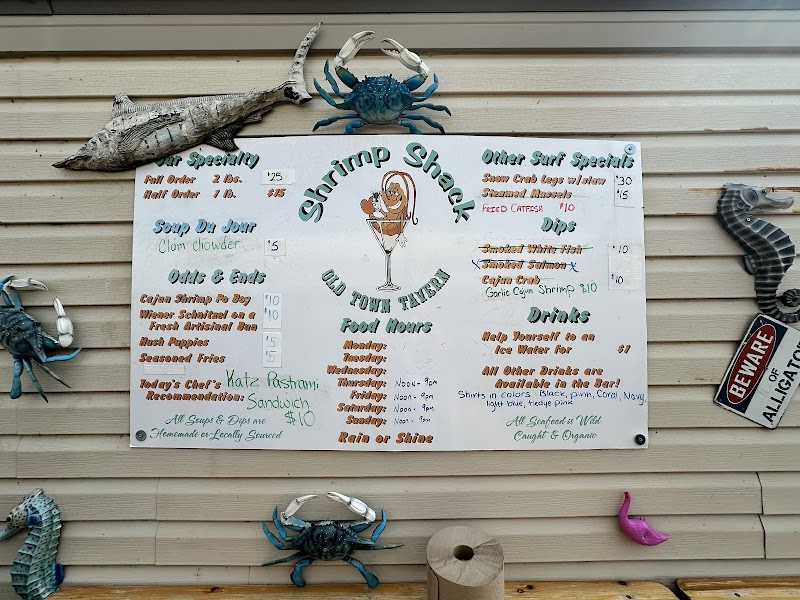 Our Specialty
Full Order 2 lbs. $25
Half Order 1 lb. $15
Soup Du Jour
Clam chowder $5
Odds & Ends
Cajun Shrimp Po Boy $10
Wiener Schnitzel on a $10
Fresh Artisinal Bun
Hush Puppies $5
Seasoned Fries $5
Today's Chef's Katz Pastrami
Recommendation: Sandwich
$10
All Soups & Dips are
Homemade or Locally Sourced
Shrimp Shack
OLD TOWN TAVERN
Food Hours
Monday:
Tuesday:
Wednesday:
Thursday: Noon - 9pm
Friday: Noon - 9pm
Saturday: Noon - 9pm
Sunday: Noon - 9pm
Rain or Shine
Other Surf Specials
Snow Crab Legs w/slaw $30
Steamed Mussels $15
FRIED CATFISH $10
Dips
Smoked White Fish $10
x Smoked Salmon x
Cajun Crab $10
Garlic Cajun Shrimp $10
Drinks
Help Yourself to an
Ice Water for $1
All Other Drinks are
Available in the Bar!
Shirts in colors: Black, pink, Coral, Navy,
light blue, tiedye pink
All Seafood is Wild
Caught & Organic
BEWARE
OF
ALLIGATOR